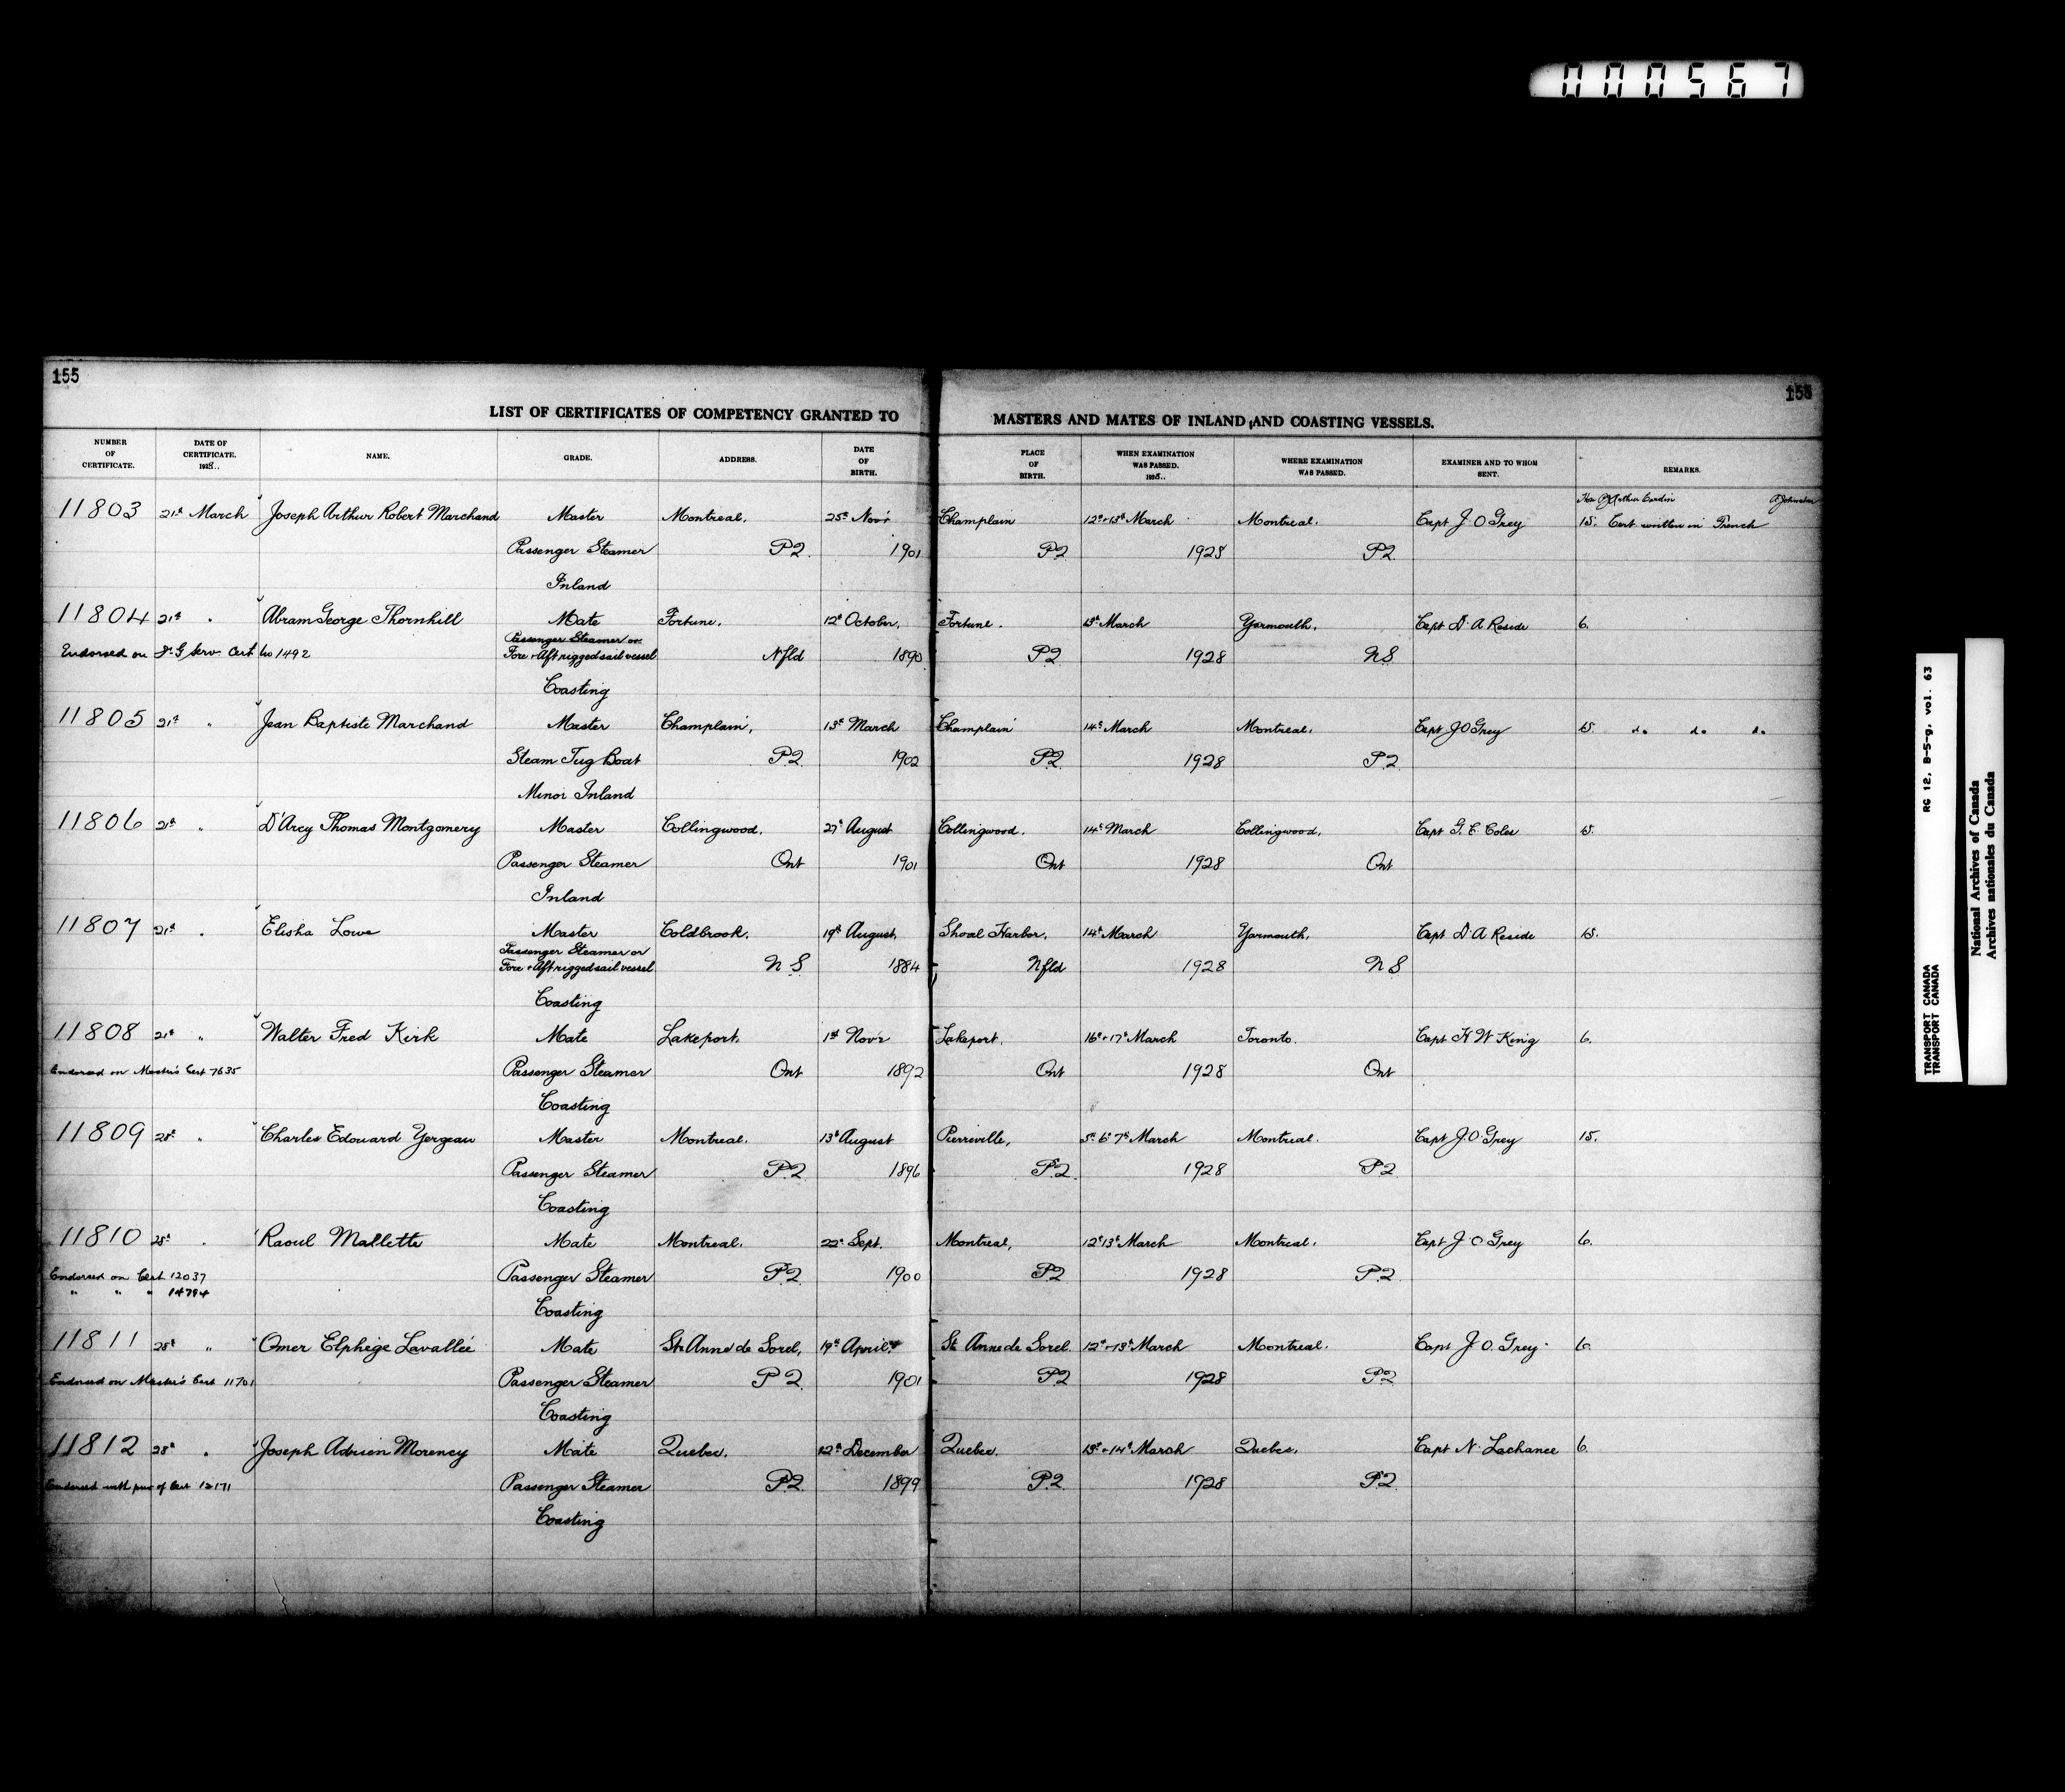 000567
155
155
LIST OF CERTIFICATES OF COMPETENCY GRANTED TO MASTERS AND MATES OF INLAND AND COASTING VESSELS.
NUMBER OF CERTIFICATE. DATE OF CERTIFICATE. NAME. GRADE. ADDRESS. DATE OF BIRTH. PLACE OF BIRTH. WHEN EXAMINATION WAS PASSED. WHERE EXAMINATION WAS PASSED. EXAMINER AND TO WHOM SENT. REMARKS.
11803 21st March Joseph Arthur Robert Marchand Master Montreal. 25th Nov'r Champlain 12th-13th March Montreal. Capt J O Grey 15. Cert written in French
Passenger Steamer P.Q. 1901 P.Q. 1928 P.Q.
Inland
11804 21st " Abram George Thornhill Mate Fortune. 12th October. Fortune. 13th March Yarmouth. Capt D. A Reside 6.
Passenger Steamer or
Endorsed on Serv. Cert No 1492 Fore & Aft rigged sail vessel Nfld 1890 P.Q. 1928 N.S.
Coasting
11805 21st " Jean Baptiste Marchand Master Champlain, 13th March Champlain 14th March Montreal. Capt J O Grey 15. do do do
Steam Tug Boat P.Q. 1902 P.Q. 1928 P.Q.
Minor Inland
11806 21st " D'Arcy Thomas Montgomery Master Collingwood. 27th August Collingwood. 14th March Collingwood. Capt G. E. Coles 15.
Passenger Steamer Ont 1901 Ont 1928 Ont
Inland
11807 21st " Elisha Lowe Master Coldbrook. 19th August. Shoal Harbor. 14th March Yarmouth. Capt D. A Reside 15.
Passenger Steamer or
Fore & Aft rigged sail vessel N.S 1884 Nfld 1928 N S
Coasting
11808 21st " Walter Fred Kirk Mate Lakeport. 1st Nov'r Lakeport. 16th-17th March Toronto. Capt H W King 6.
Endorsed on Master's Cert 7635 Passenger Steamer Ont 1892 Ont 1928 Ont
Coasting
11809 28th " Charles Edouard Yergeau Master Montreal. 13th August Pierreville, 5th 6th 7th March Montreal. Capt J. O. Grey 15.
Passenger Steamer P.Q. 1896 P.Q. 1928 P.Q
Coasting
11810 28th " Raoul Mallette Mate Montreal. 22nd Sept. Montreal, 12th 13th March Montreal. Capt J O Grey 6.
Endorsed on Cert 12037 Passenger Steamer P.Q. 1900 P.Q 1928 P.Q.
" " " 14794
Coasting
11811 28th " Omer Elphége Lavallée Mate Ste Anne de Sorel, 19th April. St. Anne de Sorel 12th-13th March Montreal. Capt J. O. Grey 6.
Endorsed on Master's Cert 11701 Passenger Steamer P Q. 1901 P.Q 1928 P.Q.
Coasting
11812 28th " Joseph Adrien Morency Mate Quebec. 12th December Quebec. 13th-14th March Quebec. Capt N. Lachance 6.
Endorsed with pur of Cert 12171 Passenger Steamer P.Q. 1899 P.Q. 1928 P.Q.
Coasting
RG 12, B-5-g, vol. 63
TRANSPORT CANADA
TRANSPORT CANADA
National Archives of Canada
Archives nationales du Canada